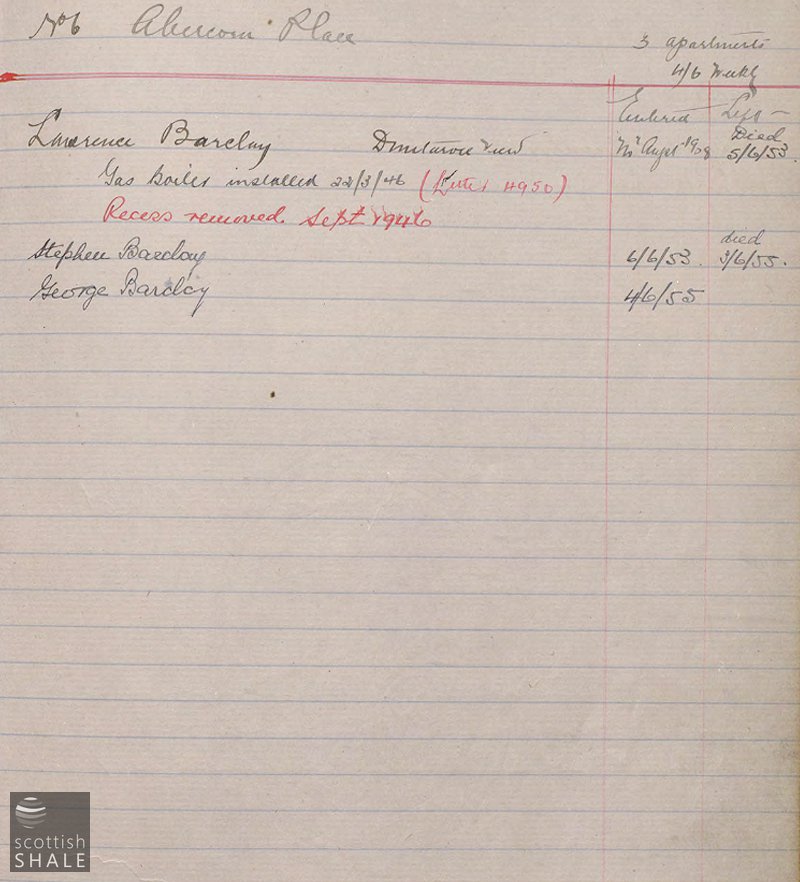 No 6 Abercorn Place
3 apartments
4/6 Weekly
Entered Left
Lawrence Barclay Augst 1908 Died 5/6/53.
Gas boiler installed 22/3/46 (Letter 4950)
Recess removed Sept 1946
Stephen Barclay 6/6/53. died 3/6/55.
George Barclay 4/6/55
scottish
SHALE